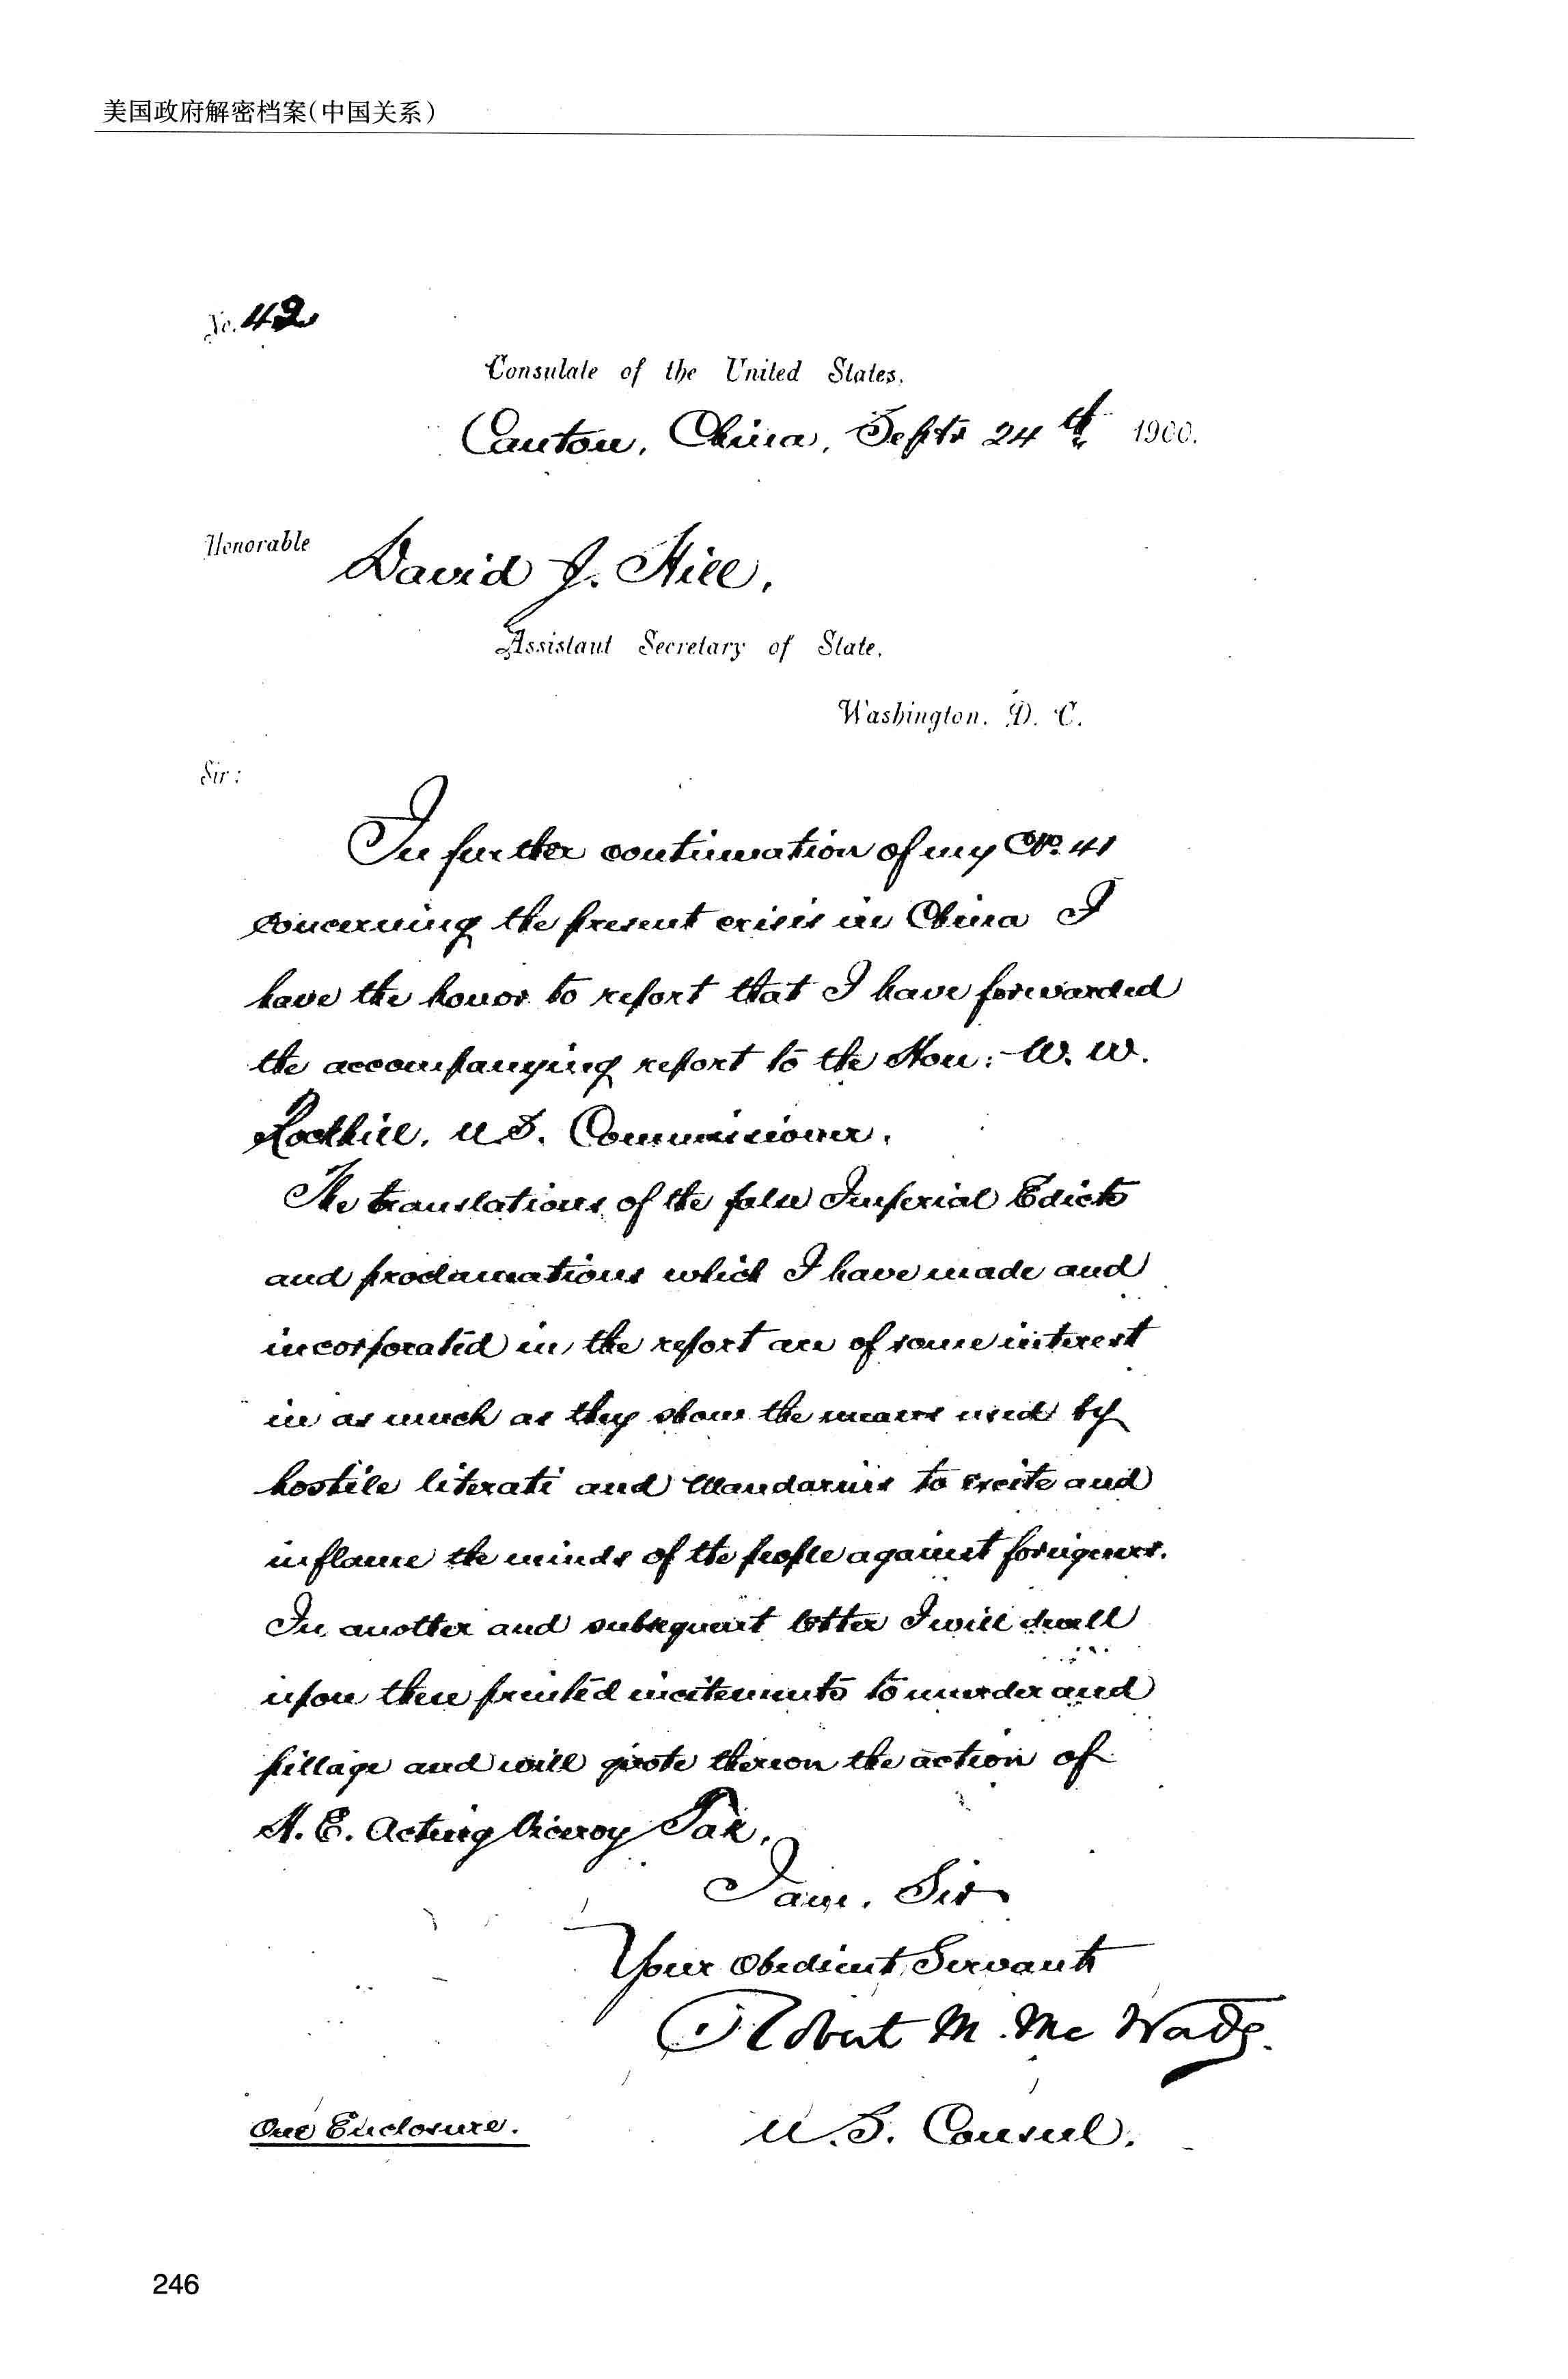 美国政府解密档案(中国关系)
No. 42
Consulate of the United States,
Canton, China, Septr 24th 1900.
Honorable David J. Hill,
Assistant Secretary of State,
Washington, D. C.
Sir:
In further continuation of my No. 41
concerning the present crisis in China I
have the honor to report that I have forwarded
the accompanying report to the Hon: W. W.
Rockhill, U.S. Commissioner.
The translations of the false Imperial Edicts
and proclamations which I have made and
incorporated in the report are of some interest
in as much as they show the means used by
hostile literati and Mandarins to excite and
inflame the minds of the people against foreigners.
In another and subsequent letter I will dwell
upon these printed incitements to murder and
pillage and will quote thereon the action of
H. E. Acting Viceroy Tak.
I am, Sir
Your Obedient Servant
Robert M. McWade.
U.S. Consul.
One Enclosure.
246